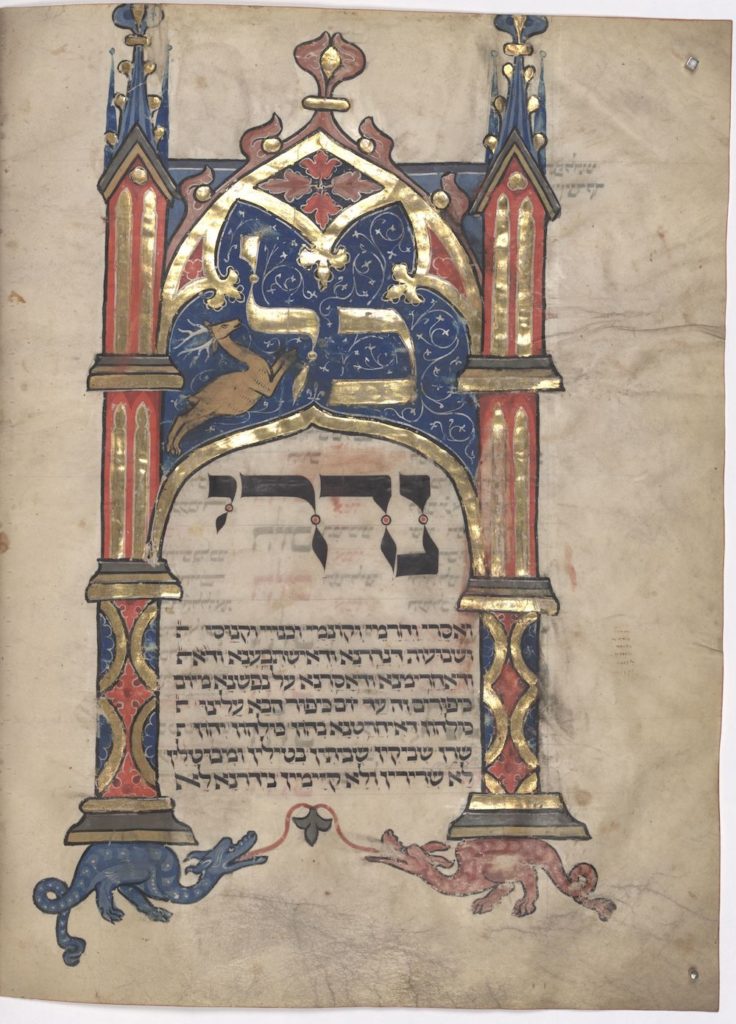 כל
נדרי
ואסרי וחרמי וקונמי וכנויי וקנוסי
שבועה דנדרנא ודאישתבענא ודאח
ודאחרימנא ודאסרנא על נפשנא מיום
כיפורים זה עד יום כפור הבא עלינו
כולהון דאיחרטנא בהון כולהון יהון
שרן שביקין שביתין בטילין ומבוטלין
לא שרירין ולא קיימין נדרנא לא